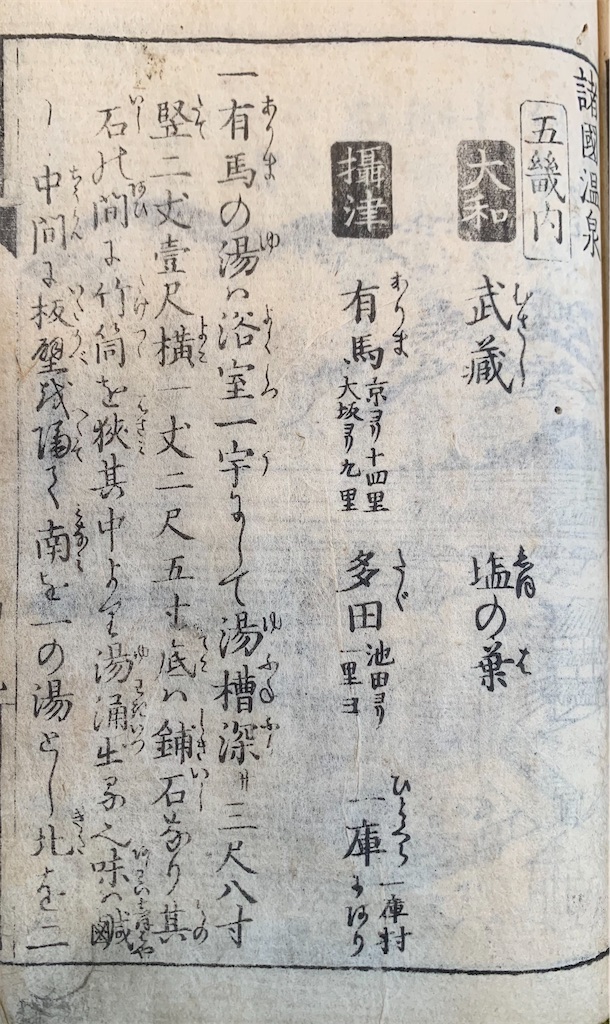 諸國温泉
五畿内
大和
武藏 むさし
塩の葉 は
攝津
有馬 ありま 京ヨリ十四里 大坂ヨリ九里
多田 たゞ 池田ヨリ 一里ヨ
一庫 ひとくら 一庫村にあり
一有馬の湯ハ浴室一宇にして湯槽深サ三尺八寸
竪二丈壹尺横一丈二尺五寸底ハ鋪石なり其
石の間に竹筒を狹其中より湯涌出る之味ハ鹹
し 中間に板壁を隔て南を一の湯とし北を二